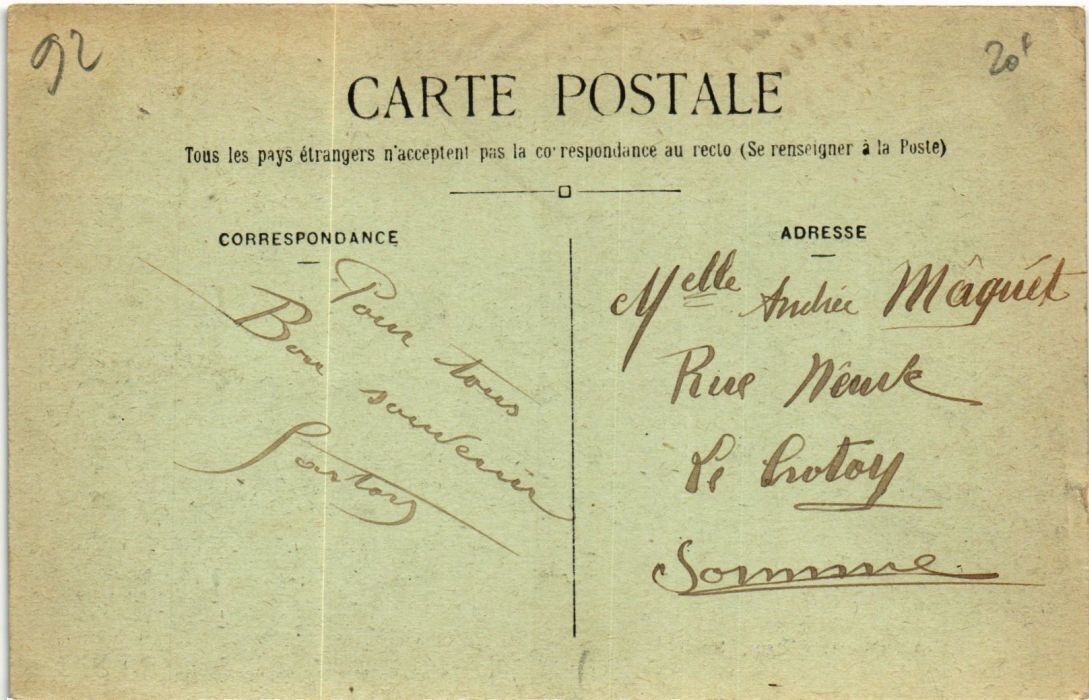 92
20f
CARTE POSTALE
Tous les pays étrangers n'acceptent pas la correspondance au recto (Se renseigner à la Poste)
CORRESPONDANCE
Pour tous
Bon souvenir
Sartory
ADRESSE
Melle Andrée Mâquét
Rue Neuve
Le Crotoy
Somme